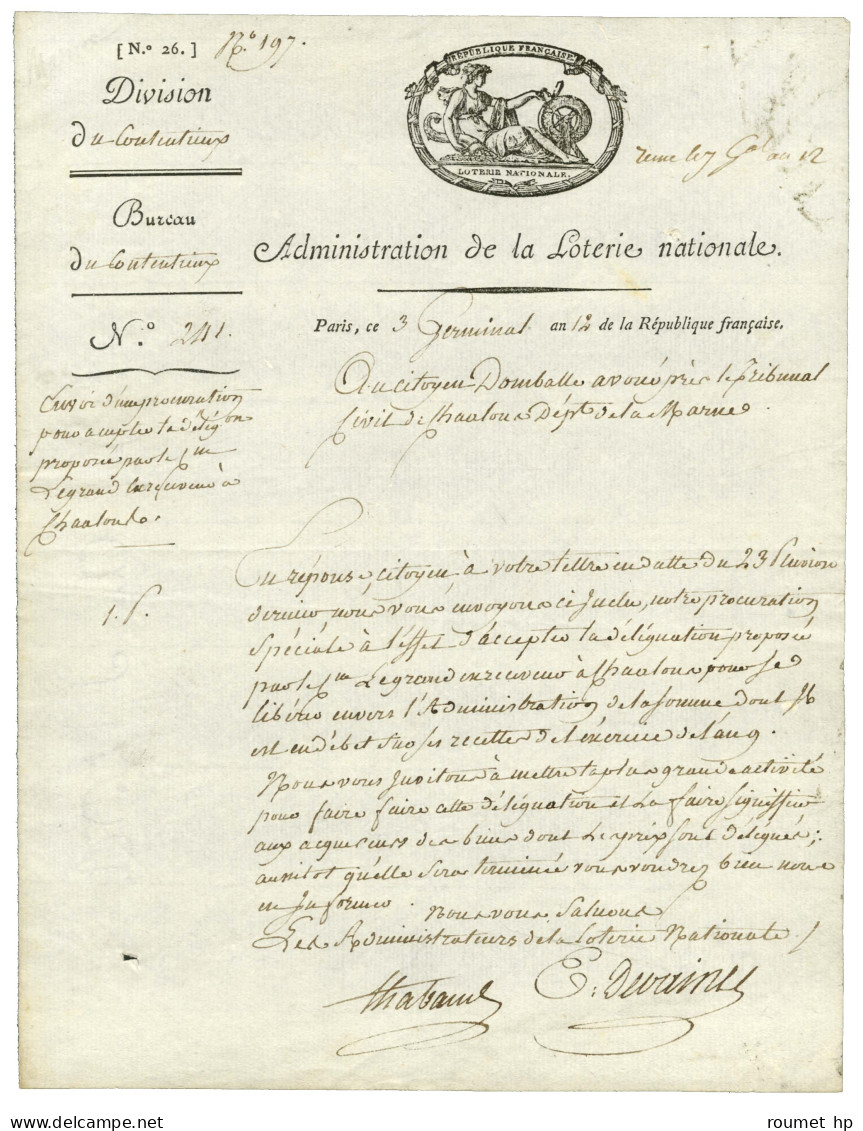 [ N.º 26. ] N.º 197.
Division
du Contentieux
Bureau
du Contentieux
N.º 241.
Envoi d'une procuration
pour accepter la délég.on
proposée par le S.
Legrand ex receveur à
Chaalons.
1. P.
RÉPUBLIQUE FRANÇAISE
LOTERIE NATIONALE.
le 7 G.al an 12
Administration de la Loterie nationale.
Paris, ce 3 Germinal an 12 de la République française.
Au citoyen Domballe avoué près le Tribunal
Civil de Chaalons Dép.t de la Marne.
En réponse, citoyen, à votre lettre en datte du 23 Pluviose
dernier, nous vous envoyons ci Inclu, notre procuration
spéciale à l'effet d'accepter la déléguation proposée
par le S. Legrand ex receveur à Chaalons pour se
libérer envers l'Administration de la somme dont Il
est en débet sur ses recettes de l'éxercice de l'an 9.
Nous vous Invitons à mettre la plus grande activité
pour faire faire cette déléguation et La faire signiffier
aux acquereurs des biens dont Le prix sont délégués;
aussitot qu'elle sera terminée vous voudrez bien nous
en Informer.
Nous vous Saluons
Les Administrateurs de la Loterie Nationale
Thabaud E. Devaines
www.delcampe.net roumet hp